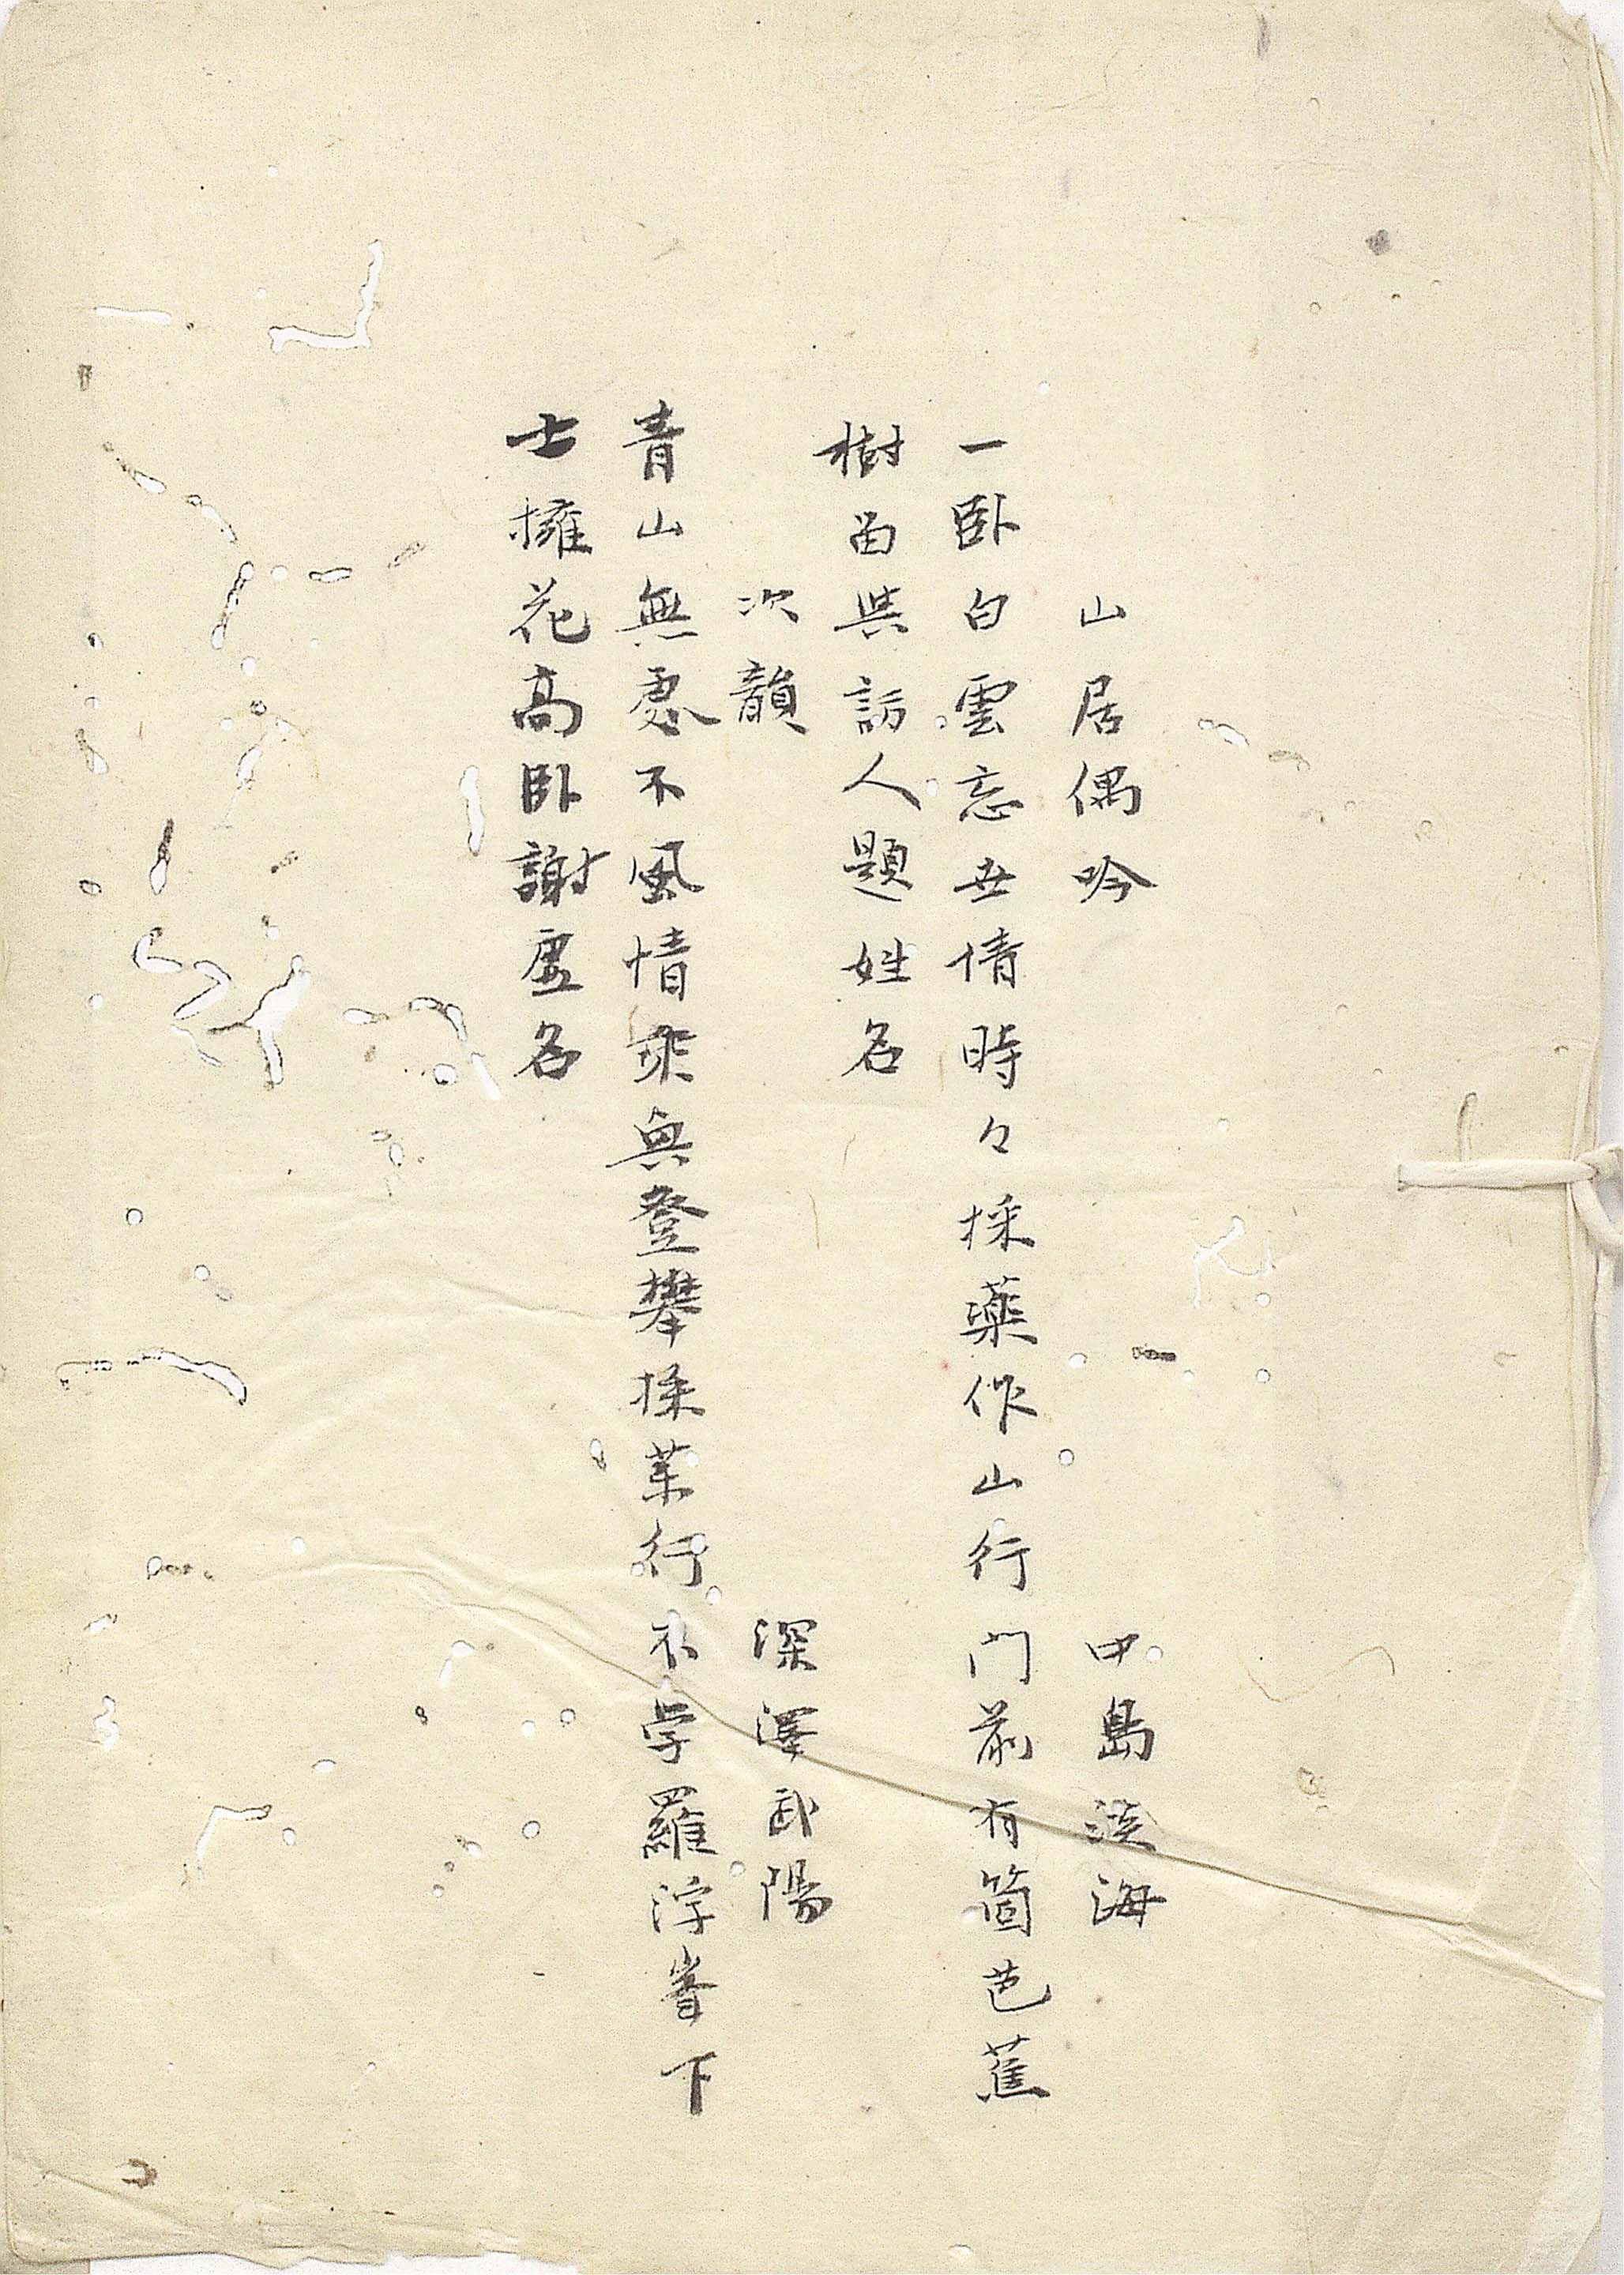 山居偶吟 中島淡海
一臥白雲忘世情時々採薬作山行門前有箇芭蕉
樹留與訪人題姓名
次韻 深澤武陽
青山無處不風情乘興登攀採茱行不学羅浮峯下
士擁花高臥謝虚名